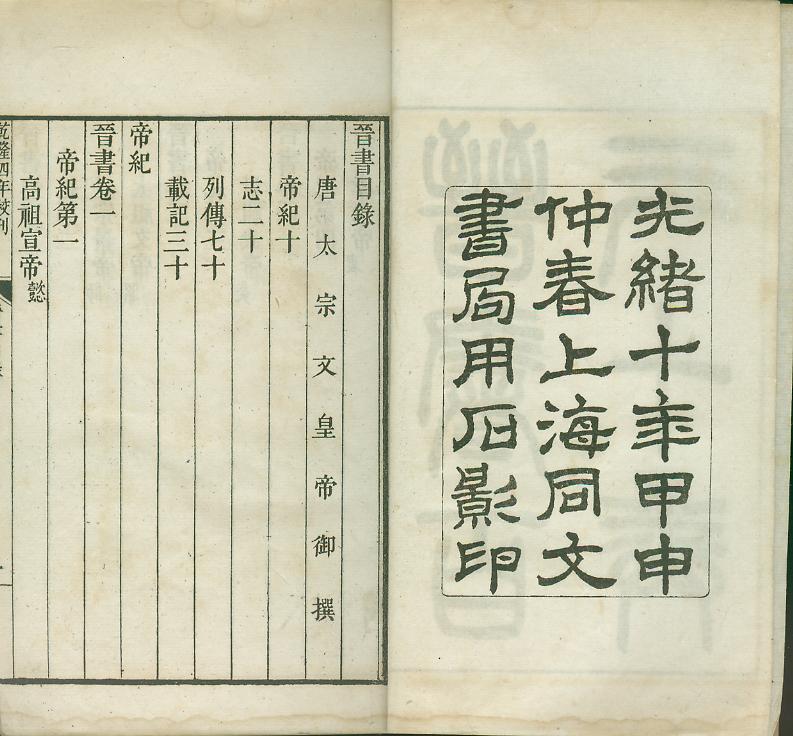 光緒十年甲申
仲春上海同文
書局用石影印
晉書目錄
唐太宗文皇帝御撰
帝紀十
志二十
列傳七十
載記三十
帝紀
晉書卷一
帝紀第一
高祖宣帝懿
乾隆四年校刊